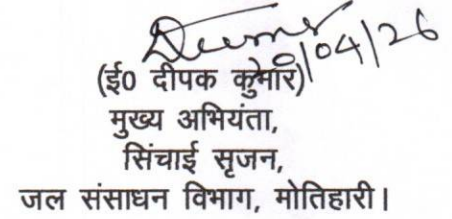 /04/26
(ई0 दीपक कुमार)
मुख्य अभियंता,
सिंचाई सृजन,
जल संसाधन विभाग, मोतिहारी।